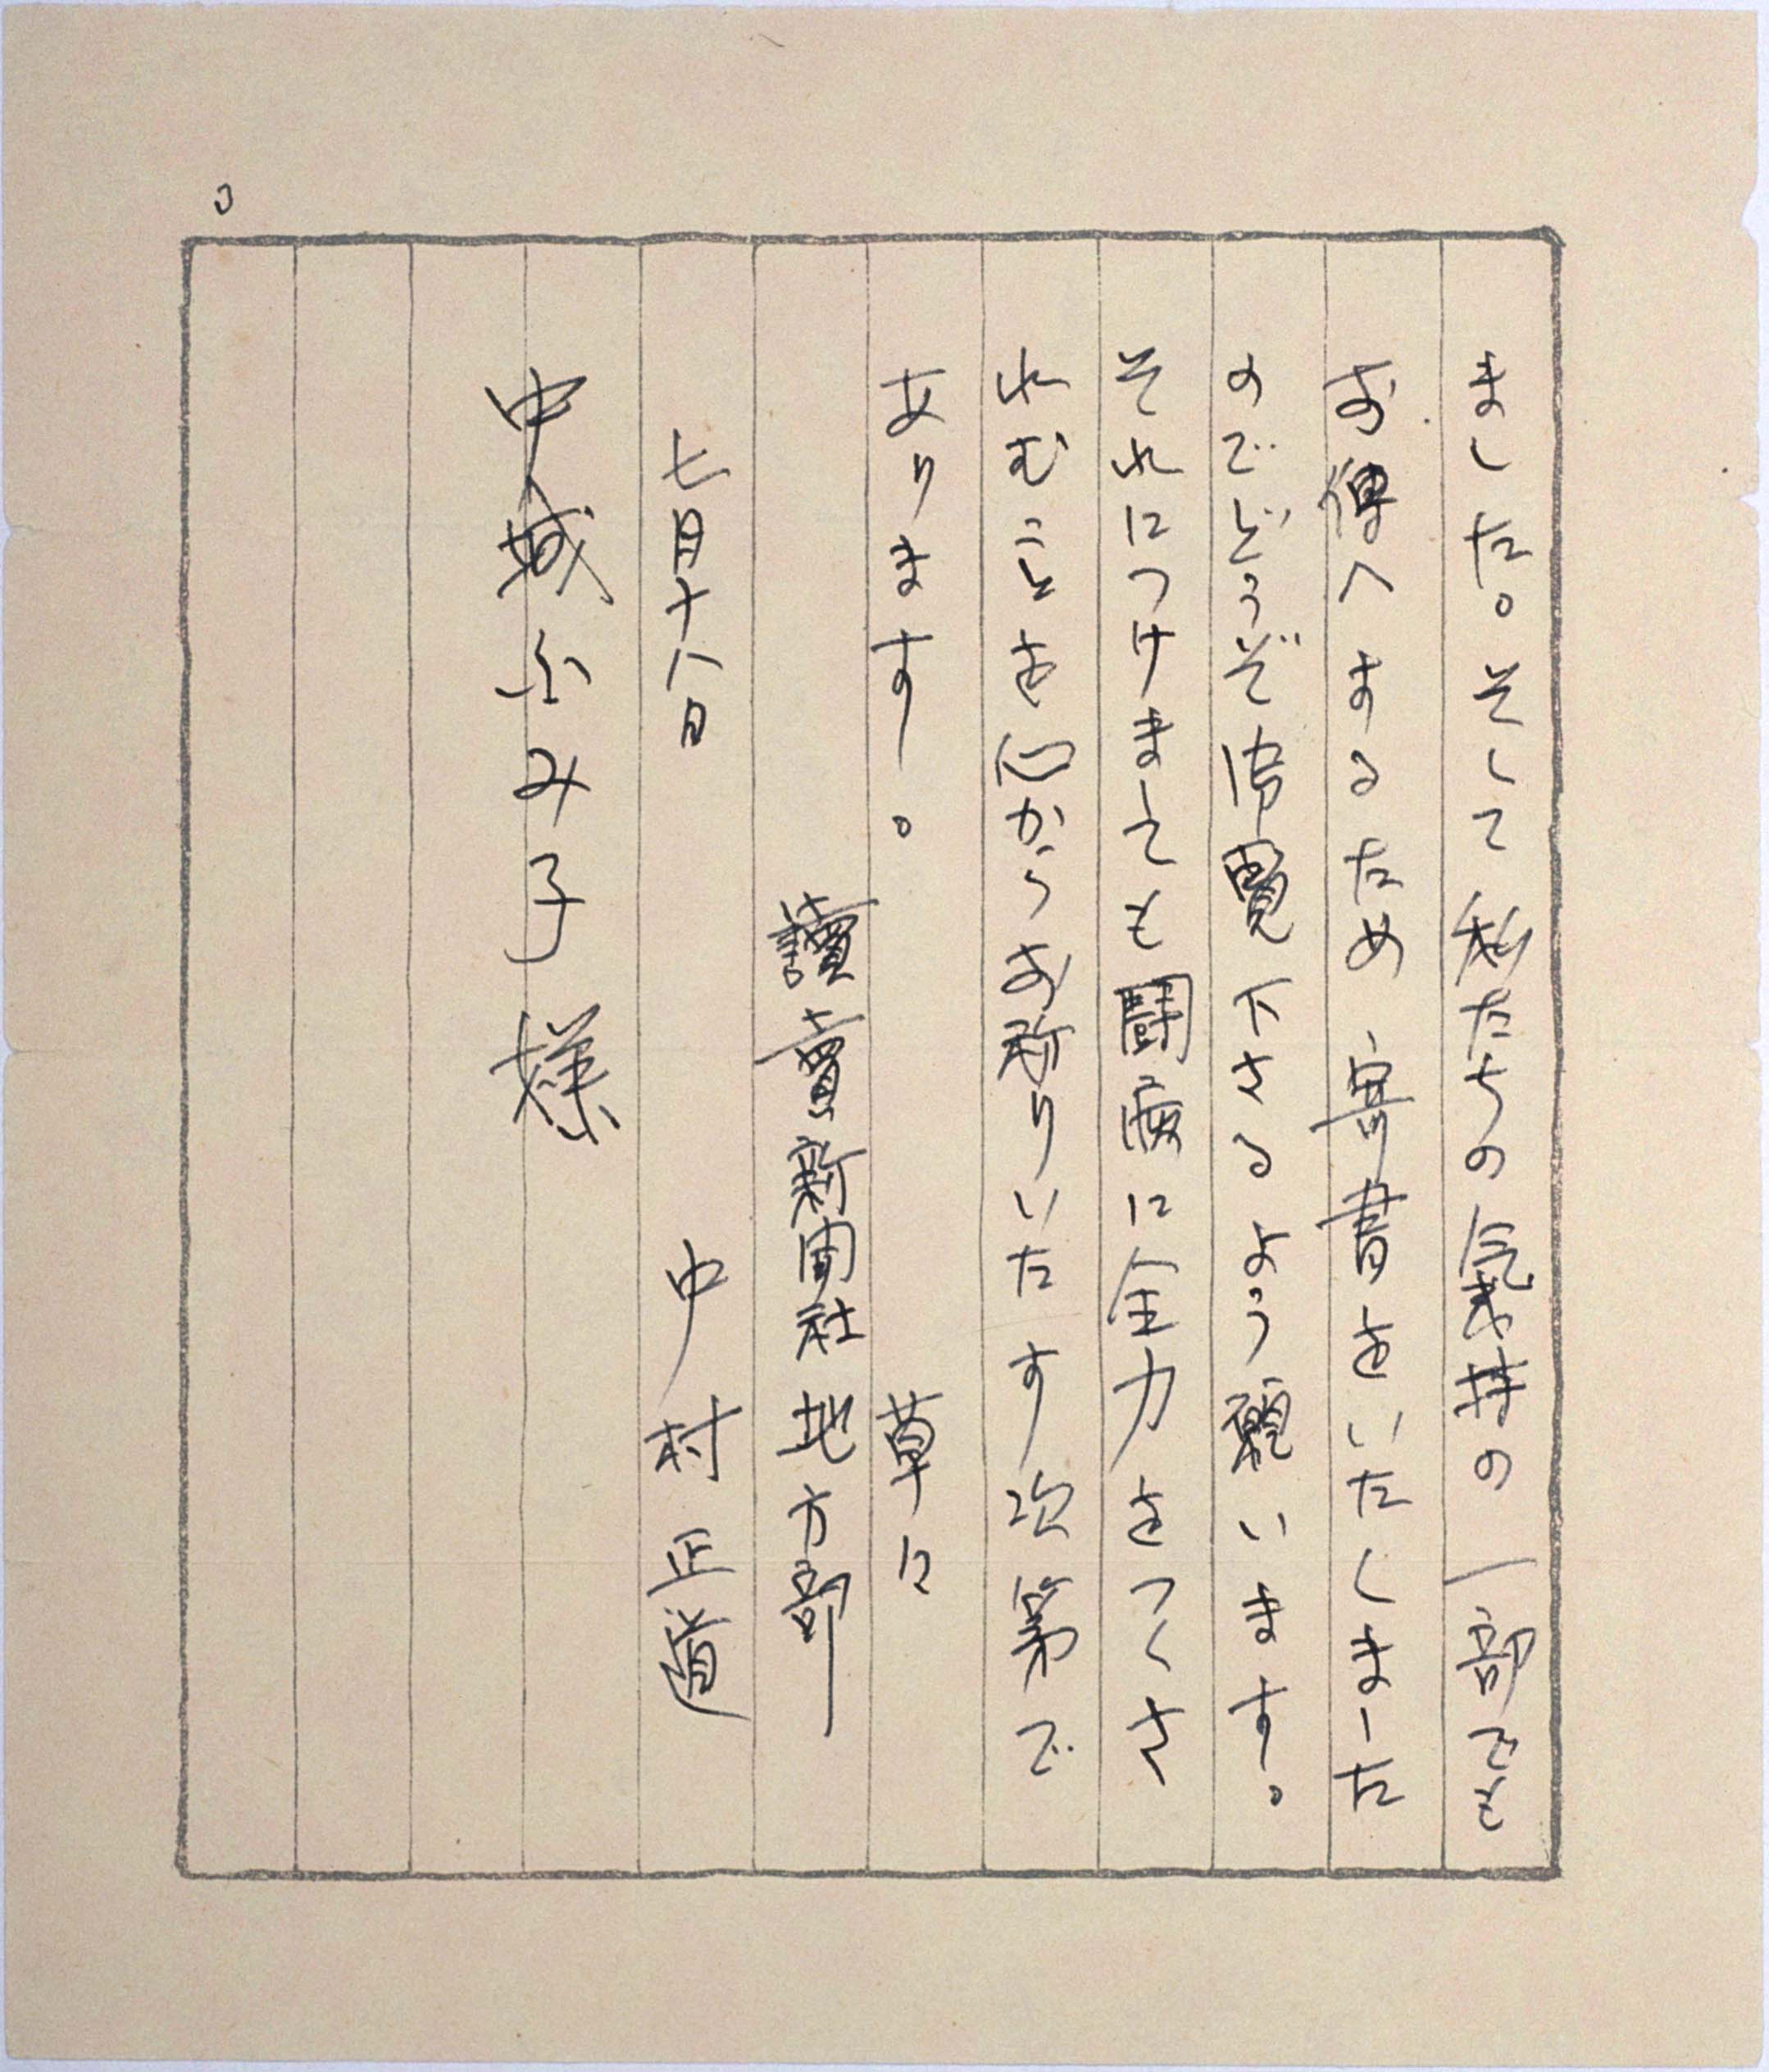 ました。そして私たちの気持の一部でも
お傳へするため寄書をいたしました
のでどうぞ御覧下さるよう願います。
それにつけましても闘病に全力をつくさ
れむことを心からお祈りいたす次第で
あります。
草々
讀賣新聞社地方部
七月十八日
中村正道
中城ふみ子様